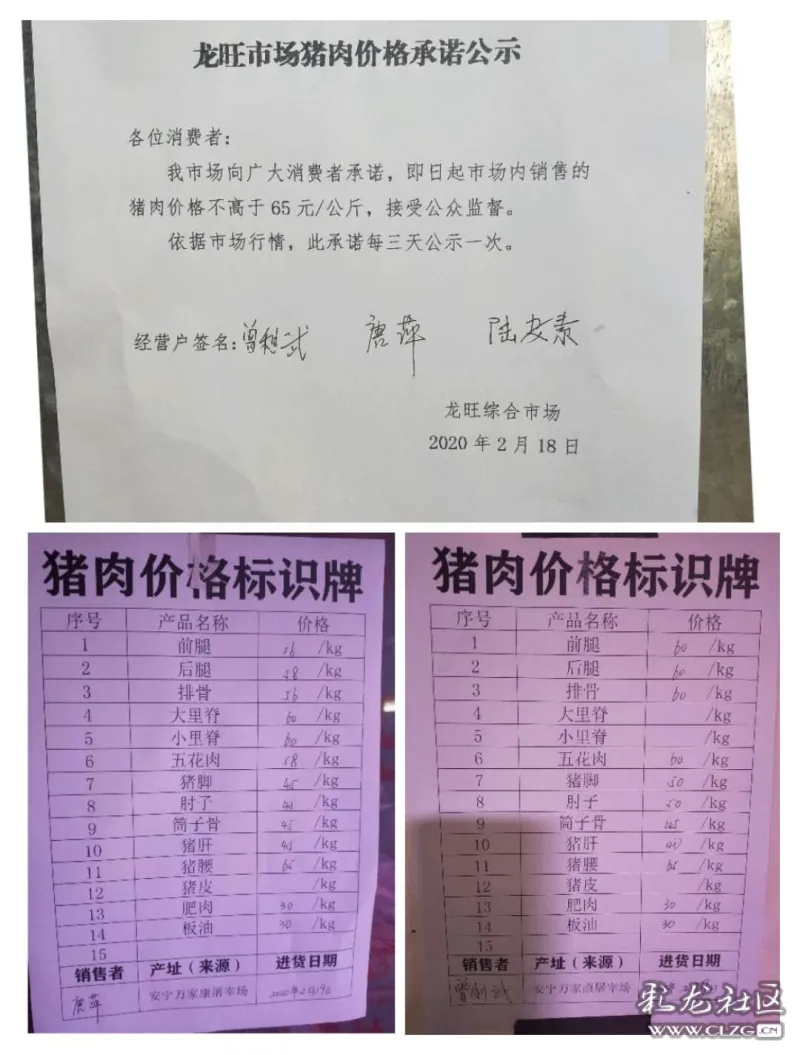 龙旺市场猪肉价格承诺公示
各位消费者：
我市场向广大消费者承诺，即日起市场内销售的
猪肉价格不高于 65 元/公斤，接受公众监督。
依据市场行情，此承诺每三天公示一次。
经营户签名： 唐萍
龙旺综合市场
2020 年 2 月 18 日
猪肉价格标识牌
序号 产品名称 价格
1 前腿 56 /kg
2 后腿 58 /kg
3 排骨 56 /kg
4 大里脊 60 /kg
5 小里脊 60 /kg
6 五花肉 58 /kg
7 猪脚 45 /kg
8 肘子 /kg
9 筒子骨 45 /kg
10 猪肝 45 /kg
11 猪腰 65 /kg
12 猪皮 /kg
13 肥肉 30 /kg
14 板油 30 /kg
15
销售者 产址（来源） 进货日期
唐萍 安宁万家康屠宰场 2020年2月19日
猪肉价格标识牌
序号 产品名称 价格
1 前腿 60 /kg
2 后腿 60 /kg
3 排骨 60 /kg
4 大里脊 /kg
5 小里脊 /kg
6 五花肉 60 /kg
7 猪脚 50 /kg
8 肘子 50 /kg
9 筒子骨 45 /kg
10 猪肝 40 /kg
11 猪腰 65 /kg
12 猪皮 /kg
13 肥肉 30 /kg
14 板油 30 /kg
15
销售者 产址（来源） 进货日期
安宁万家康屠宰场
社区
WWW.CLZG.CN